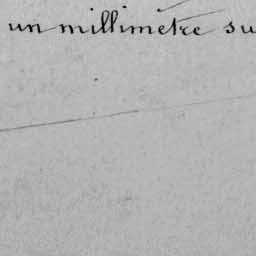 un millimètre su